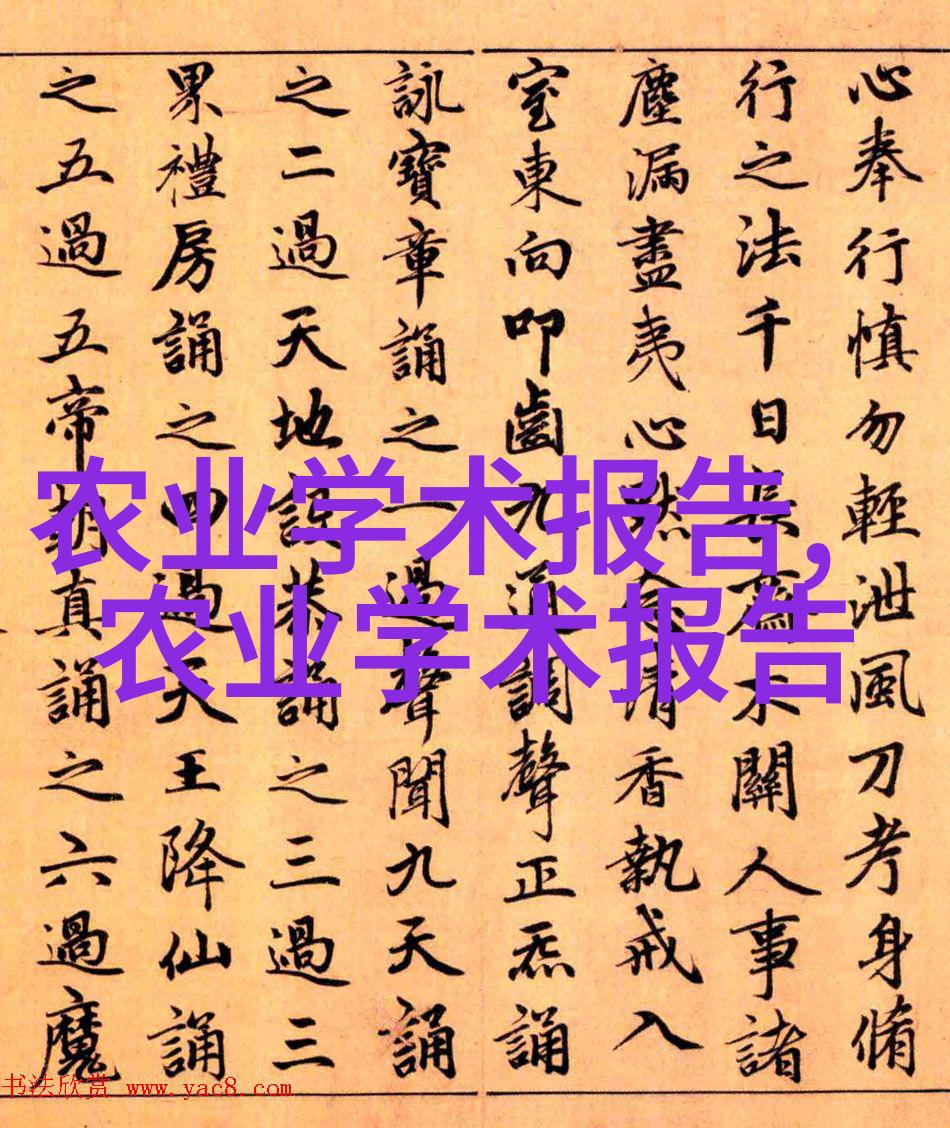 心奉行慎勿輕泄風刀考身脩
行之法千日長齋不關人事諸
塵漏盡夷心默念清香執戒入
室東向叩齒九通調聲正炁誦
詠寶章誦之一過聲聞九天誦
之二過天地設恭誦之三過三
累禮房誦之四過天王降仙誦
之五過五帝朝真誦之六過魔
农业学术报告,
农业学术报告
书法欣赏 www.yac8.com